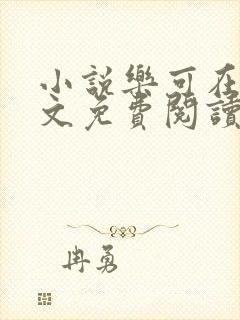 小說樂可在
文免費閱讀
冉勇